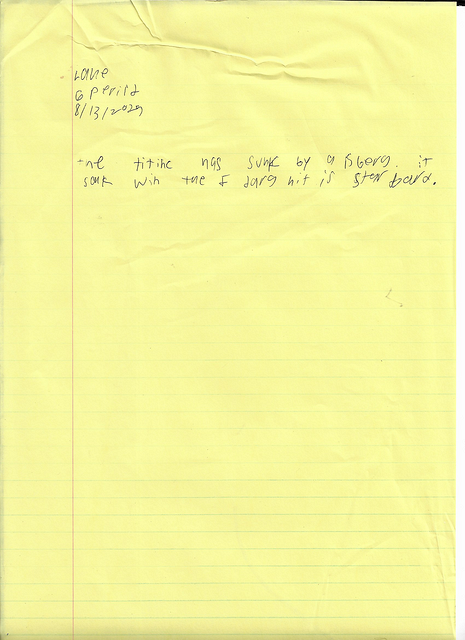 Lane
6 perild
8/13/2029
the titinc has sunk by a isberg. it
sank win the I sarg hit is starboard.